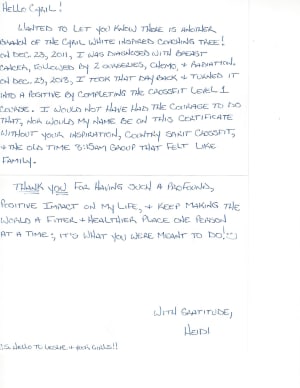 Hello Cyril!
Wanted to let you know there is another
branch of the Cyril White inspired coaching tree!
On Dec. 23, 2011, I was diagnosed with breast
cancer, followed by 2 surgeries, chemo, + radiation.
On Dec. 23, 2013, I took that day back + turned it
into a positive by completing the CrossFit Level 1
course. I would not have had the courage to do
that, nor would my name be on this certificate
without your inspiration, Country Spirit CrossFit,
+ the old time 8:15am group that felt like
family.
Thank you for having such a profound,
positive impact on my life, + keep making the
world a fitter + healthier place one person
at a time; it's what you were meant to do!
With gratitude,
Heidi
P.S. Hello to Leslie + your girls!!